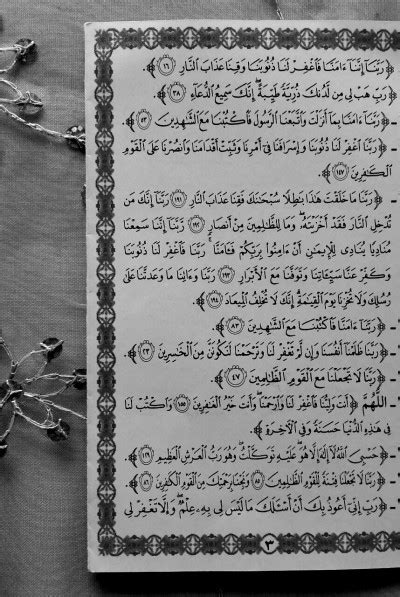 ﴿رَبَّنَآ إِنَّنَآ ءَامَنَّا فَٱغْفِرْ لَنَا ذُنُوبَنَا وَقِنَا عَذَابَ ٱلنَّارِ ١٦﴾.
- ﴿رَبِّ هَبْ لِى مِن لَّدُنكَ ذُرِّيَّةً طَيِّبَةً إِنَّكَ سَمِيعُ ٱلدُّعَآءِ ٣٨﴾.
- ﴿رَبَّنَآ ءَامَنَّا بِمَآ أَنزَلْتَ وَٱتَّبَعْنَا ٱلرَّسُولَ فَٱكْتُبْنَا مَعَ ٱلشَّٰهِدِينَ ٥٣﴾.
- ﴿رَبَّنَا ٱغْفِرْ لَنَا ذُنُوبَنَا وَإِسْرَافَنَا فِىٓ أَمْرِنَا وَثَبِّتْ أَقْدَامَنَا وَٱنصُرْنَا عَلَى ٱلْقَوْمِ
ٱلْكَٰفِرِينَ ١٤٧﴾.
- ﴿رَبَّنَا مَا خَلَقْتَ هَٰذَا بَٰطِلًا سُبْحَٰنَكَ فَقِنَا عَذَابَ ٱلنَّارِ ١٩١ رَبَّنَآ إِنَّكَ مَن
تُدْخِلِ ٱلنَّارَ فَقَدْ أَخْزَيْتَهُۥ وَمَا لِلظَّٰلِمِينَ مِنْ أَنصَارٍ ١٩٢ رَّبَّنَآ إِنَّنَا سَمِعْنَا
مُنَادِيًا يُنَادِى لِلْإِيمَٰنِ أَنْ ءَامِنُوا۟ بِرَبِّكُمْ فَـَٔامَنَّا رَبَّنَا فَٱغْفِرْ لَنَا ذُنُوبَنَا
وَكَفِّرْ عَنَّا سَيِّـَٔاتِنَا وَتَوَفَّنَا مَعَ ٱلْأَبْرَارِ ١٩٣ رَبَّنَا وَءَاتِنَا مَا وَعَدتَّنَا عَلَىٰ
رُسُلِكَ وَلَا تُخْزِنَا يَوْمَ ٱلْقِيَٰمَةِ إِنَّكَ لَا تُخْلِفُ ٱلْمِيعَادَ ١٩٤﴾.
- ﴿رَبَّنَآ ءَامَنَّا فَٱكْتُبْنَا مَعَ ٱلشَّٰهِدِينَ ٨٣﴾.
- ﴿رَبَّنَا ظَلَمْنَآ أَنفُسَنَا وَإِن لَّمْ تَغْفِرْ لَنَا وَتَرْحَمْنَا لَنَكُونَنَّ مِنَ ٱلْخَٰسِرِينَ ٢٣﴾.
- ﴿رَبَّنَا لَا تَجْعَلْنَا مَعَ ٱلْقَوْمِ ٱلظَّٰلِمِينَ ٤٧﴾.
- اللَّهُمَّ ﴿أَنتَ وَلِيُّنَا فَٱغْفِرْ لَنَا وَٱرْحَمْنَا وَأَنتَ خَيْرُ ٱلْغَٰفِرِينَ ١٥٥ وَٱكْتُبْ لَنَا
فِى هَٰذِهِ ٱلدُّنْيَا حَسَنَةً وَفِى ٱلْءَاخِرَةِ﴾.
- ﴿حَسْبِىَ ٱللَّهُ لَآ إِلَٰهَ إِلَّا هُوَ عَلَيْهِ تَوَكَّلْتُ وَهُوَ رَبُّ ٱلْعَرْشِ ٱلْعَظِيمِ ١٢٩﴾.
- ﴿رَبَّنَا لَا تَجْعَلْنَا فِتْنَةً لِّلْقَوْمِ ٱلظَّٰلِمِينَ ٨٥ وَنَجِّنَا بِرَحْمَتِكَ مِنَ ٱلْقَوْمِ ٱلْكَٰفِرِينَ ٨٦﴾.
- ﴿رَبِّ إِنِّىٓ أَعُوذُ بِكَ أَنْ أَسْـَٔلَكَ مَا لَيْسَ لِى بِهِۦ عِلْمٌ وَإِلَّا تَغْفِرْ لِى
٣